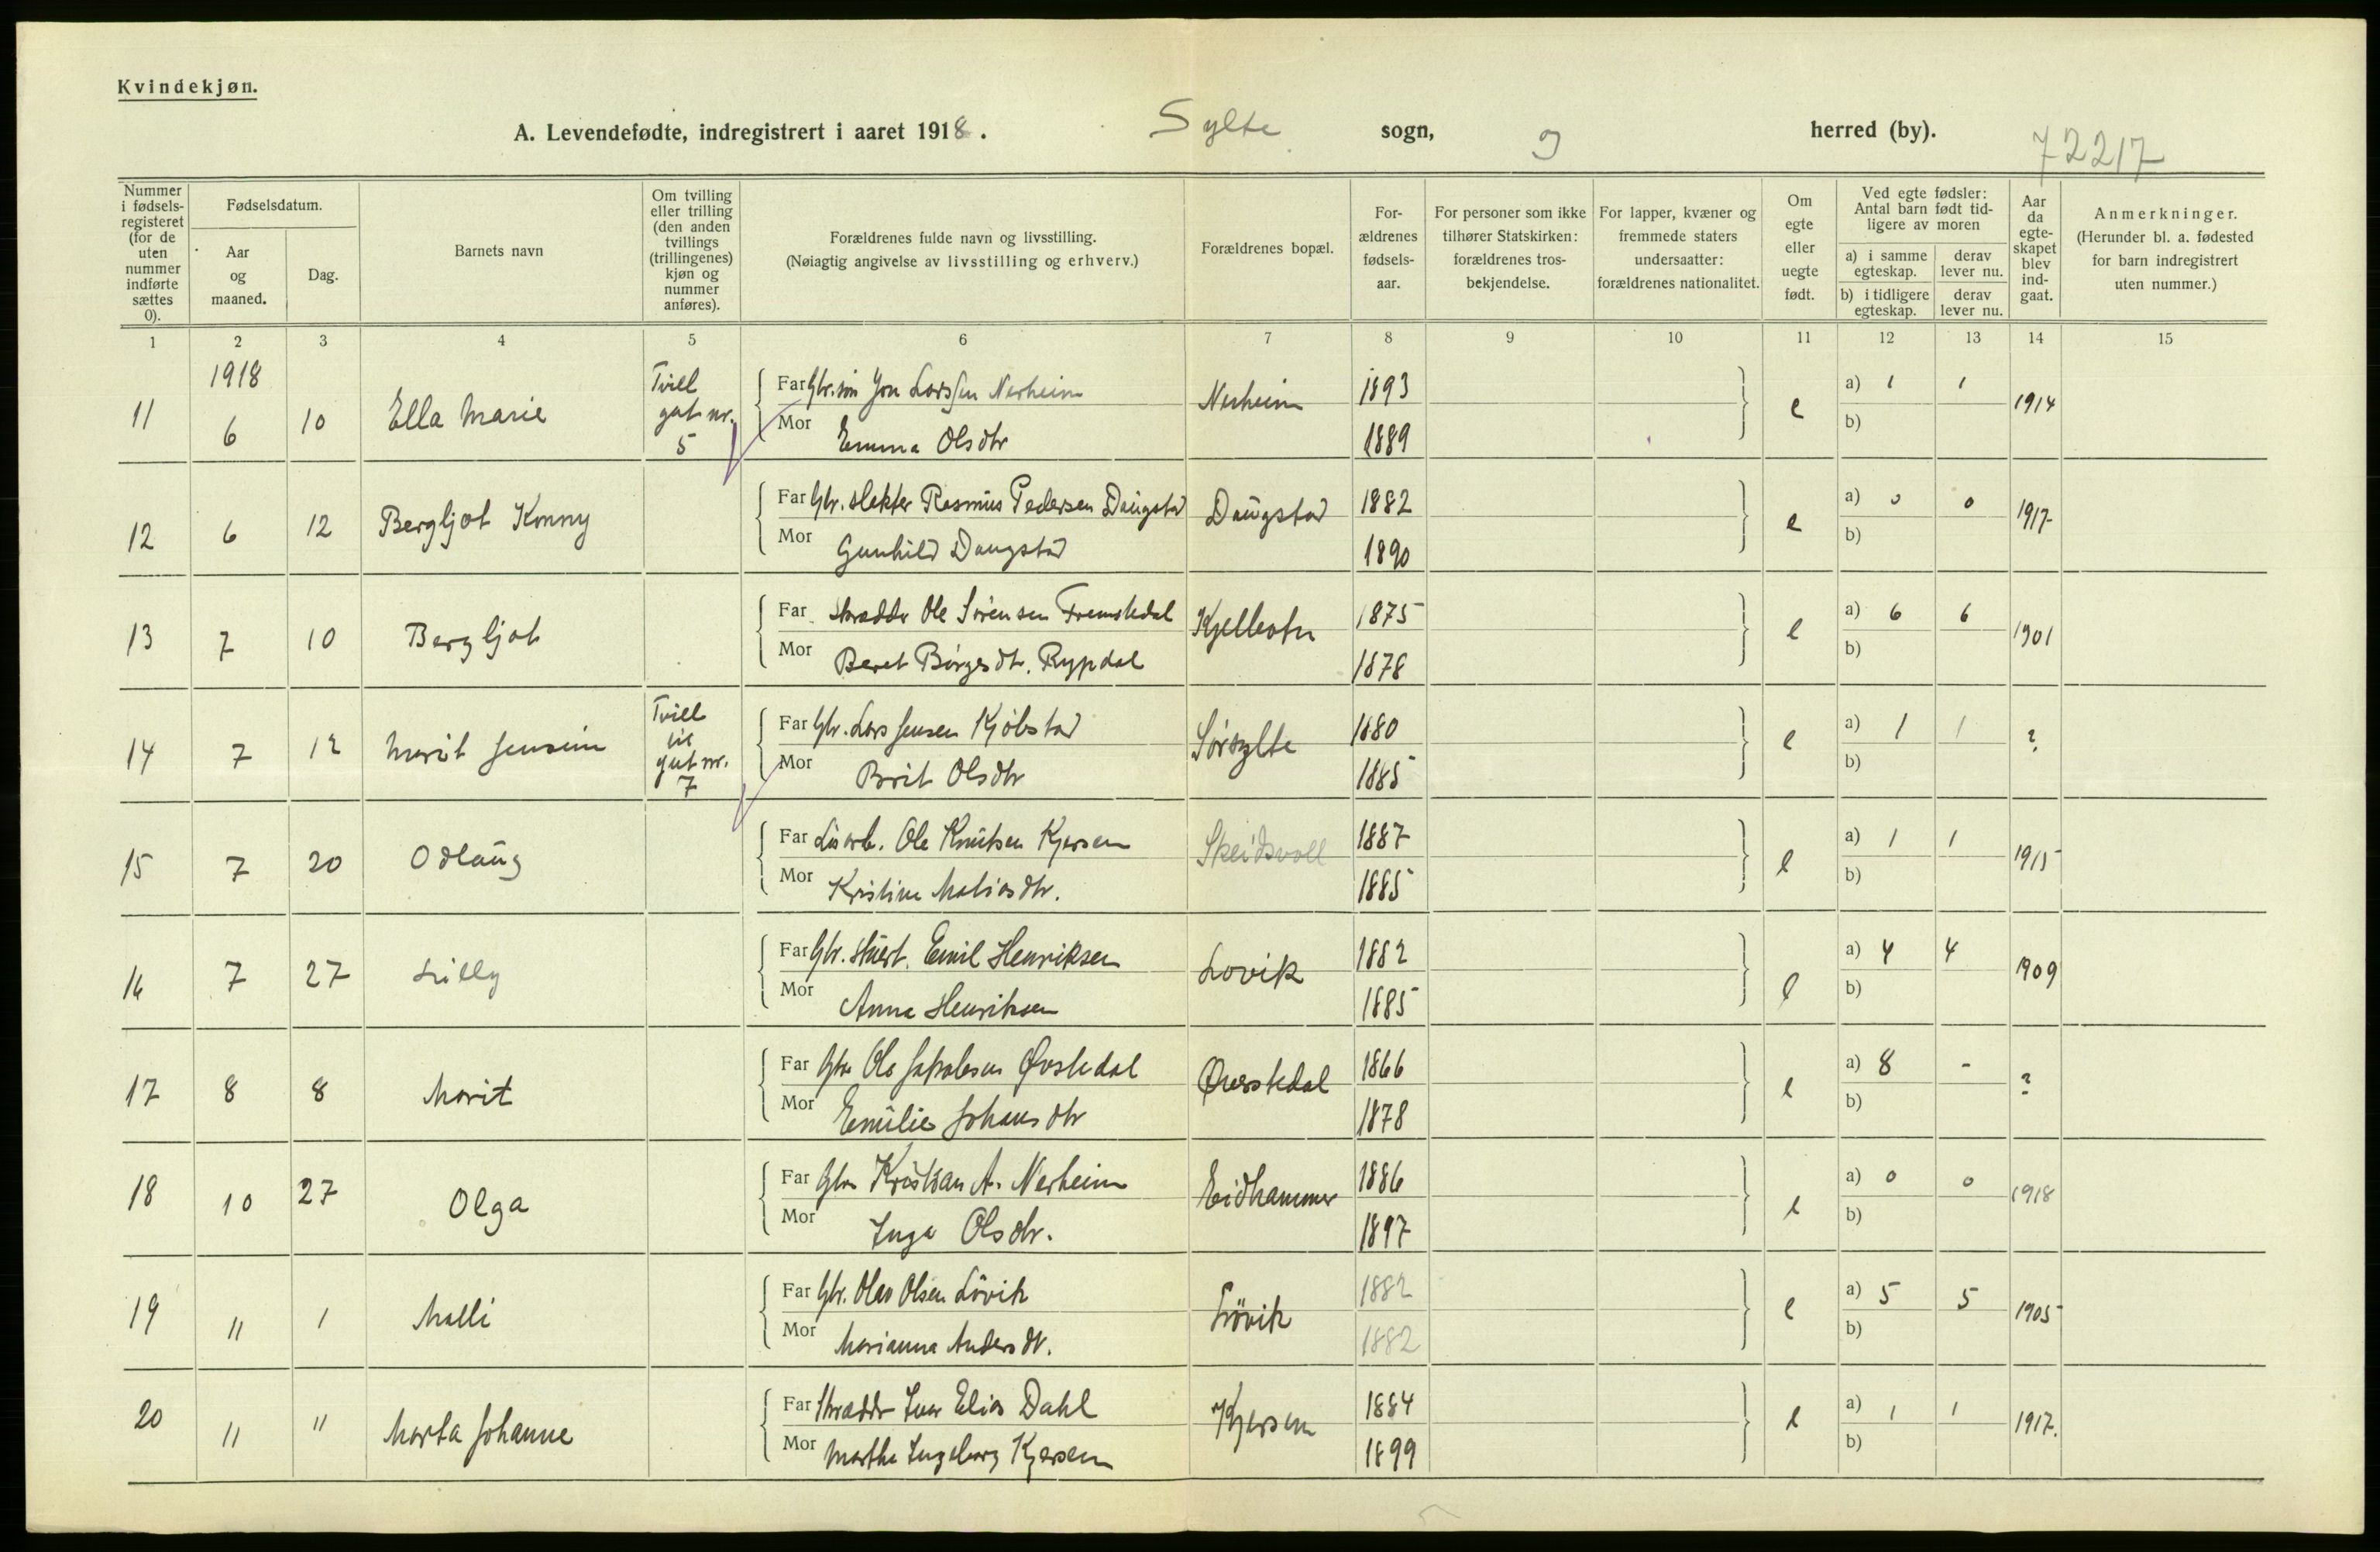 Kvindekjøn.
A. Levendefødte, indregistrert i aaret 1918. Sylte sogn, herred (by).
72217
Nummer i fødsels-registeret (for de uten nummer indførte sættes 0).
Fødselsdatum.
Aar og maaned.
Dag.
Barnets navn
Om tvilling eller trilling (den anden tvillings (trillingenes) kjøn og nummer anføres).
Forældrenes fulde navn og livsstilling.
(Nøiagtig angivelse av livsstilling og erhverv.)
Forældrenes bopæl.
For-ældrenes fødsels-aar.
For personer som ikke tilhører Statskirken: forældrenes tros-bekjendelse.
For lapper, kvæner og fremmede staters undersaatter: forældrenes nationalitet.
Om egte eller uegte født.
Ved egte fødsler: Antal barn født tid-ligere av moren
a) i samme egteskap.
derav lever nu.
b) i tidligere egteskap.
derav lever nu.
Aar da egte-skapet blev ind-gaat.
Anmerkninger.
(Herunder bl. a. fødested for barn indregistrert uten nummer.)
1 2 3 4 5 6 7 8 9 10 11 12 13 14 15
1918
11 6 10 Ella Marie Tvill gut nr. 5 Far Gbr. søn Jon Larssen Nerheim Nerheim 1893 e a) 1 1 1914
Mor Emma Olsdtr 1889 b)
12 6 12 Bergljot Konny Far Gbr. slakter Rasmus Pedersen Daugstad Daugstad 1882 e a) 0 0 1917
Mor Gunhild Daugstad 1890 b)
13 7 10 Bergljot Far Skrædder Ole Sørensen Fremstedal 1875 e a) 6 6 1901
Mor Beret Børgesdtr. Rypdal 1878 b)
14 7 12 Marit Jensine Tvill til gut nr. 7 Far Gbr. Lars Jensen Kjøbstad Sørsylte 1880 e a) 1 1 ?
Mor Brit Olsdtr 1885 b)
15 7 20 Odlaug Far Løsarb. Ole Knutsen Kjersem Skeidsvoll 1887 e a) 1 1 1915
Mor Kristine Matiasdtr. 1885 b)
16 7 27 Lilly Far Gbr. Emil Henriksen Lovik 1882 e a) 4 4 1909
Mor Anna Henriksen 1885 b)
17 8 8 Marit Far Gbr Ole Jakobsen Øvstedal Øverstedal 1866 e a) 8 - ?
Mor Emilie Johansdtr 1878 b)
18 10 27 Olga Far Gbr Kristian A. Nerheim Eidhammer 1886 e a) 0 0 1918
Mor Inga Olsdtr. 1897 b)
19 11 1 Malli Far Gbr. Olav Olsen Lövik Lövik 1882 e a) 5 5 1905
Mor Marianna Andersdtr. 1882 b)
20 11 11 Marta Johanne Far Skrædder Ivar Elias Dahl Kjersem 1884 e a) 1 1 1917.
Mor Marthe Ingeborg Kjersem 1899 b)